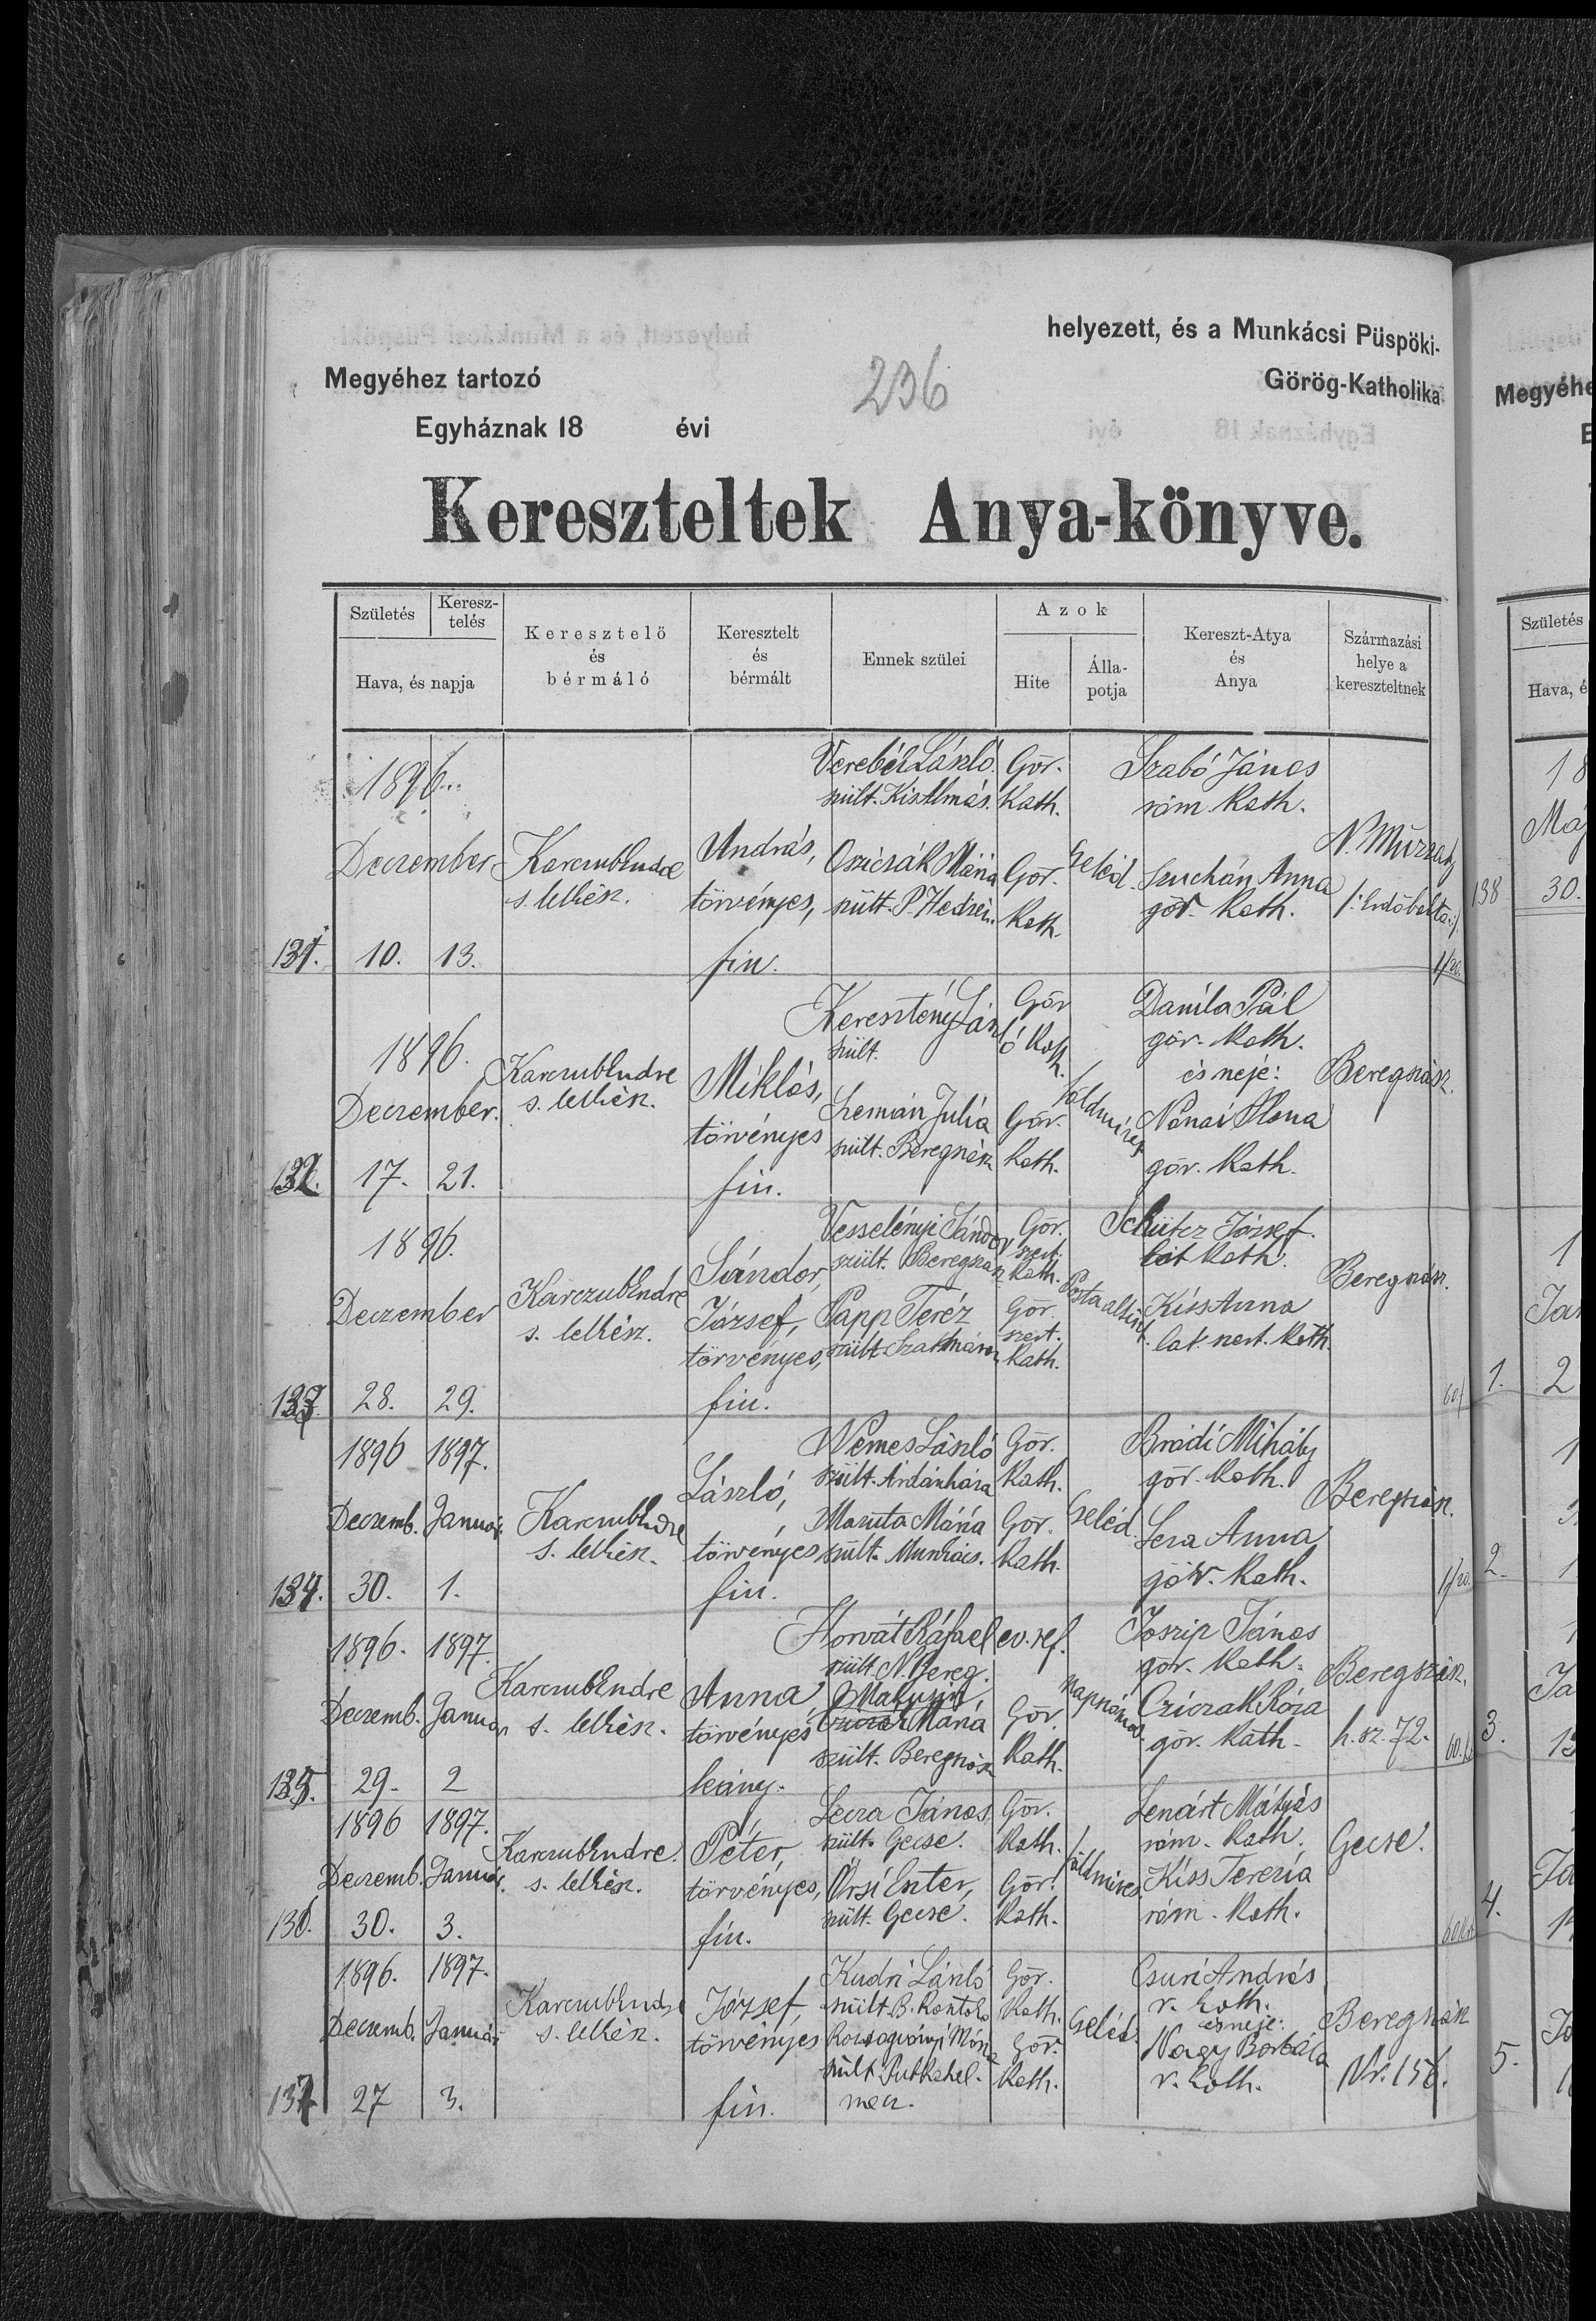 helyezett, és a Munkácsi Püspöki-
Megyéhez tartozó
236
Görög-Katholika
Egyháznak 18 évi
Kereszteltek Anya-könyve.
Születés
Keresz-
telés
Hava, és napja
Keresztelő
és
bérmáló
Keresztelt
és
bérmált
Ennek szülei
Azok
Hite
Álla-
potja
Kereszt-Atya
és
Anya
Származási
helye a
kereszteltnek
131.
1896.
December
10. 13.
Karczub Endre
s. lelkész.
András,
törvényes,
fiu.
Verebél László
szült. Kis Almás.
Oszicsák Mária
szült.
Gör.
Kath.
Gör.
Kath.
Cseléd.
Szabó János
róm. Kath.
Szuchán Anna
gör. Kath.
N. Muzsaly
/: Erdőbakta :/
1/20.
132.
1896.
December.
17. 21.
Karczub Endre
s. lelkész.
Miklós,
törvényes
fiu.
Keresztény László
szült.
Szemán Julia
szült. Beregszász
Gör
Kath.
Gör.
Kath.
földmíves
Danila Pál
gör. Kath.
és neje:
Nánai Ilona
gör. Kath.
Beregszász.
133.
1896.
December
28. 29.
Karczub Endre
s. lelkész.
Sándor,
József,
törvényes,
fiu.
Vesselényi Sándor
szült. Beregszász
Papp Teréz
szült. Szatmáron
Gör.
szert.
Kath.
Gör.
szert.
Kath.
Posta altiszt.
Schütz József
lat. Kath.
Kiss Anna
lat. szert. Kath.
Beregszász.
134.
1896 1897.
Deczemb. Január
30. 1.
Karczub Endre
s. lelkész.
László,
törvényes
fiu.
Nemes László
szült. Ardánháza
Maszuta Mária
szült. Munkács.
Gör.
Kath.
Gör.
Kath.
Cseléd.
Bródi Mihály
gör. Kath.
Sera Anna
gör. Kath.
Beregszász.
1/20.
135.
1896. 1897.
Deczemb. Január
29. 2
Karczub Endre
s. lelkész.
Anna
törvényes
leány.
Horvát Ráfael
szült. N. Bereg.
Mária
szült. Beregszász
ev. ref.
Gör.
Kath.
napszámos.
Joszip János
gör. Kath.
Cziczak Róza
gör. Kath.
Beregszász.
h. sz. 72.
136.
1896 1897.
Deczemb. Január
30. 3.
Karczub Endre
s. lelkész.
Péter,
törvényes,
fiu.
Lecza János
szült. Gecse.
Őrsi Eszter,
szült. Gecse.
Gör.
Kath.
Gör.
Kath.
földmíves.
Lenárt Mátyás
róm. Kath.
Kiss Terézia
róm. Kath.
Gecse.
137.
1896. 1897.
Deczemb. Január
27 3.
Karczub Endre
s. lelkész.
József,
törvényes
fiu.
Kudri László
Mária
Gör.
Kath.
Gör.
Kath.
Cseléd.
Csuri András
r. kath.
és neje:
Nagy Borbála
r. kath.
Beregszász
Nr. 156.
Megyéhe
Születés
Hava, é
18
Máj
138
30.
1
Jan
1. 2
2.
3. 13
4.
5.